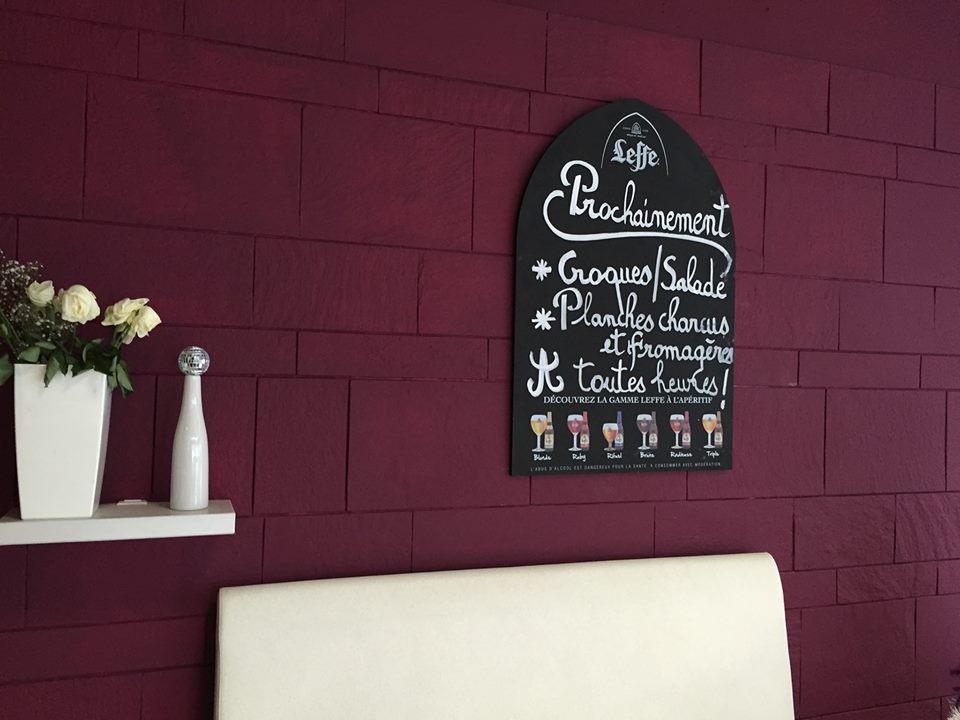 Leffe
Prochainement
* Croques/Salade
* Planches charcus
et fromagères
toutes heures!
DÉCOUVREZ LA GAMME LEFFE À L'APÉRITIF
Blonde Ruby Rituel Brune Radieuse Triple
L'ABUS D'ALCOOL EST DANGEREUX POUR LA SANTÉ. A CONSOMMER AVEC MODÉRATION.